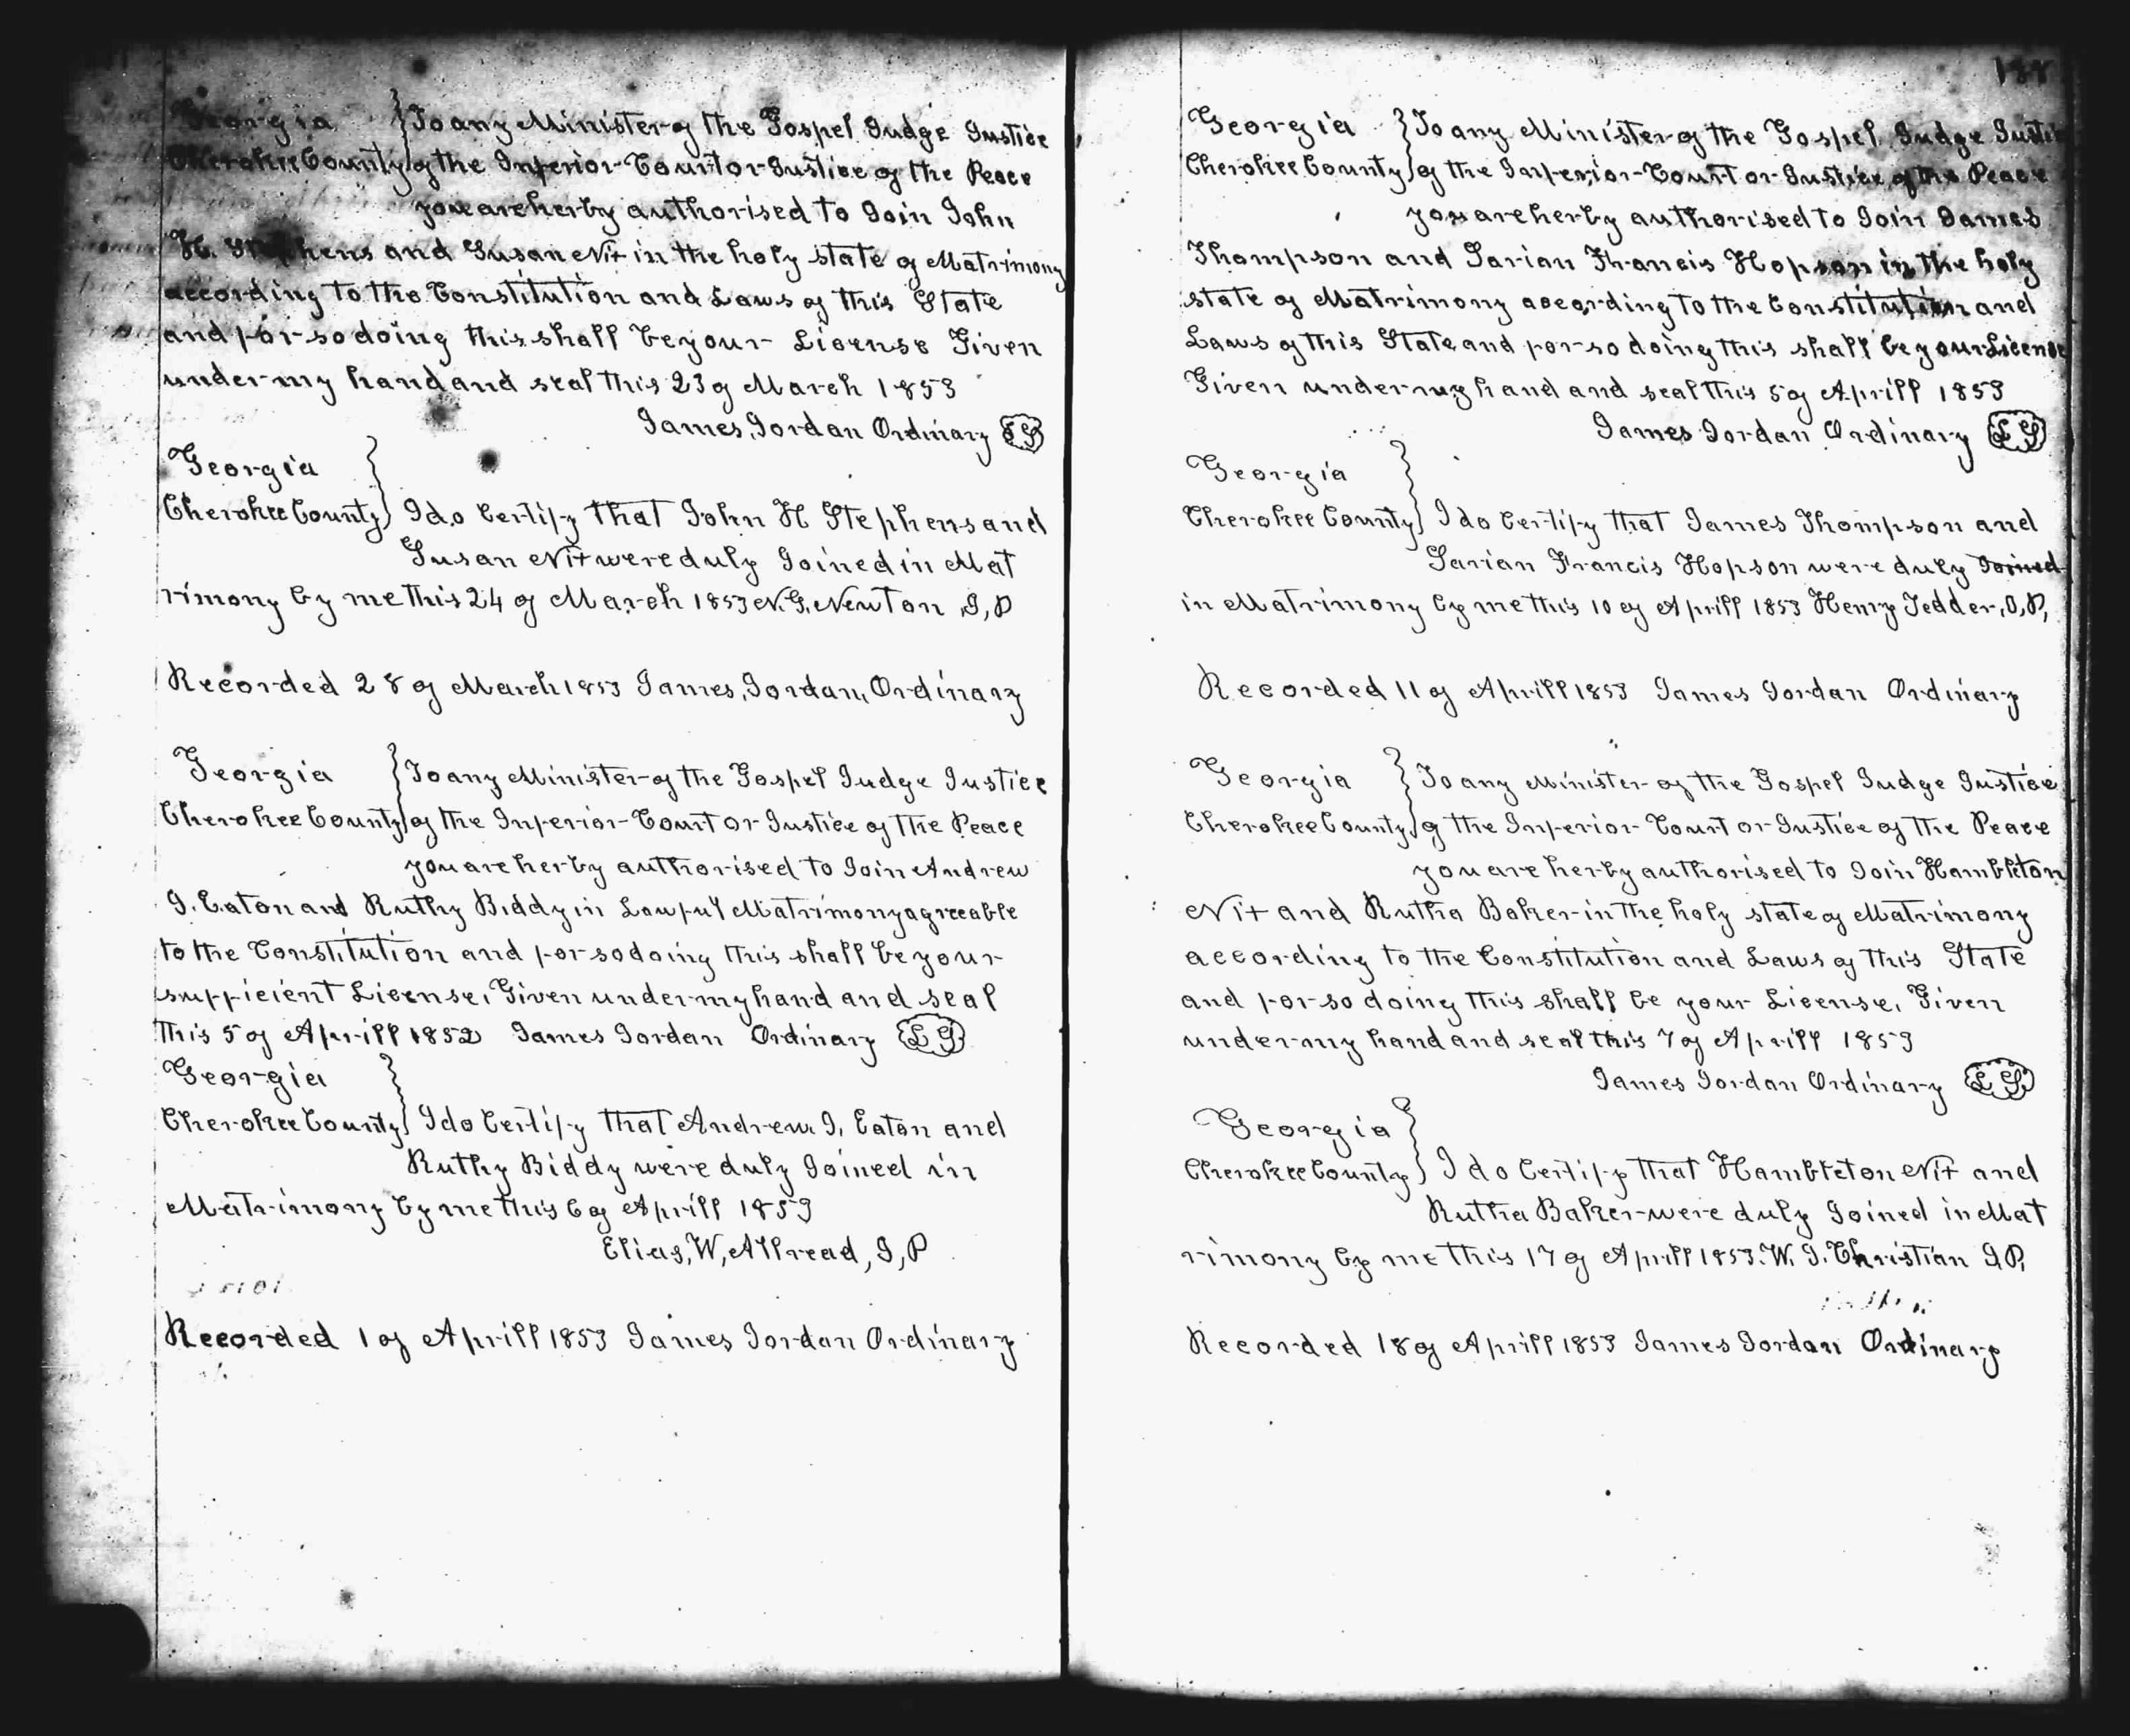 Georgia } To any Minister of the Gospel Judge Justice
Cherokee County } of the Inferior Court or Justice of the Peace
you are herby authorised to Join John
H. Stephens and Susan Nix in the holy state of Matrimony
according to the Constitution and Laws of this State
and for so doing this shall be your License Given
under my hand and seal this 23 of March 1853
James, Jordan Ordinary LS
Georgia }
Cherokee County } I do Certify that John H Stephens and
Susan Nix were duly Joined in Mat
rimony by me this 24 of March 1853 N. G. Newton J, P
Recorded 28 of March 1853 James, Jordan, Ordinary
Georgia } To any Minister of the Gospel Judge Justice
Cherokee County } of the Inferior Court or Justice of the Peace
you are herby authorised to Join Andrew
J. Eaton and Ruthy Biddy in Lawful Matrimony agreeable
to the Constitution and for so doing this shall be your
sufficient License, Given under my hand and seal
this 5 of Aprill 1852 James Jordan Ordinary LS
Georgia }
Cherokee County } I do Certify that Andrew J, Eaton and
Ruthy Biddy were duly Joined in
Matrimony by me this 6 of Aprill 1853
Elias, W, Allread, J, P
Recorded 1 of Aprill 1853 James Jordan Ordinary
188
Georgia } To any Minister of the Gospel Judge Justice
Cherokee County } of the Inferior Court or Justice of the Peace
you are herby authorised to Join James
Thompson and Sarian Francis Hopson in the holy
state of Matrimony according to the Constitution and
Laws of this State and for so doing this shall be your License
Given under my hand and seal this 5 of Aprill 1853
James Jordan Ordinary LS
Georgia }
Cherokee County } I do Certify that James Thompson and
Sarian Francis Hopson were duly Joined
in Matrimony by me this 10 of Aprill 1853 Henry Tedder, J, P,
Recorded 11 of Aprill 1853 James Jordan Ordinary
Georgia } To any Minister of the Gospel Judge Justice
Cherokee County } of the Inferior Court or Justice of the Peace
you are herby authorised to Join Hambleton
Nix and Rutha Baker in the holy state of Matrimony
according to the Constitution and Laws of this State
and for so doing this shall be your License, Given
under my hand and seal this 7 of Aprill 1853
James Jordan Ordinary LS
Georgia }
Cherokee County } I do Certify that Hambleton Nix and
Rutha Baker were duly Joined in Mat
rimony by me this 17 of Aprill 1853. W. J. Christian J. P,
Recorded 18 of Aprill 1853 James Jordan Ordinary